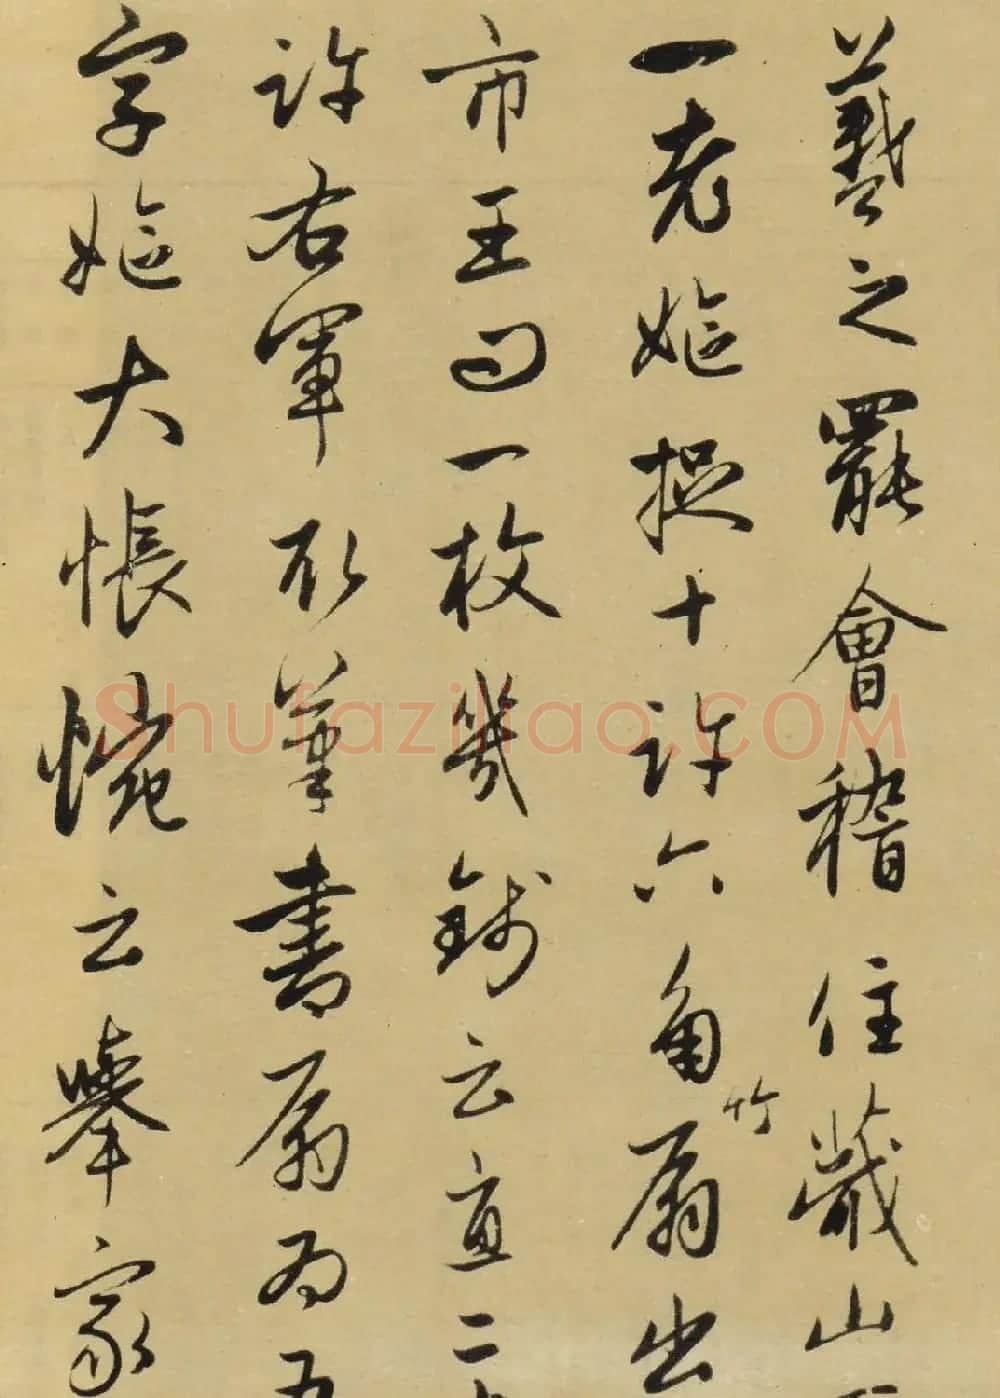 羲之罷會稽住蕺山
一老嫗捉十許六角竹扇出
市王問一枚幾錢云直二
許右軍取筆書扇為五
字嫗大悵惋云舉家
Shufaziliao.COM